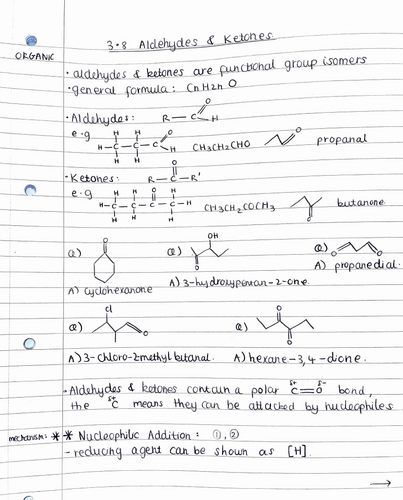 3.8 Aldehydes & Ketones
ORGANIC
· aldehydes & ketones are functional group isomers
· general formula: CnH2nO
· Aldehydes: R—C O H
e.g H H O H—C—C—C H H H CH3CH2CHO O propanal
· Ketones: O R—C—R'
e.g H H O H H—C—C—C—C—H H H H CH3CH2COCH3 O butanone
Q) O Q) OH O Q) O O
A) cyclohexanone A) 3-hydroxypentan-2-one. A) propanedial.
Q) Cl O Q) O O
A) 3-chloro-2methylbutanal. A) hexane-3,4-dione.
- Aldehydes & ketones contain a polar δ+ C=O δ- bond,
the δ+ C means they can be attacked by nucleophiles
mechanism: * * Nucleophilic Addition: ①,②
- reducing agent can be shown as [H].
→